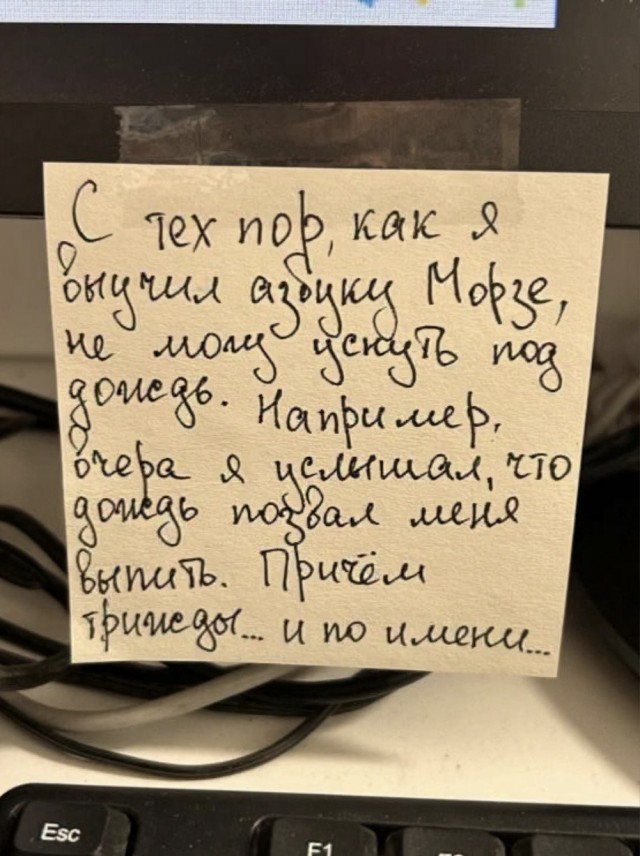 С тех пор, как я
выучил азбуку Морзе,
не могу уснуть под
дождь. Например,
вчера я услышал, что
дождь позвал меня
выпить. Причём
трижды... и по имени...
Esc
F1